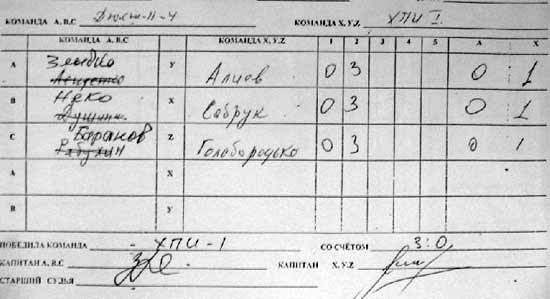 КОМАНДА А, В, С Дюсш-11-4 КОМАНДА X, Y, Z ХПИ I
КОМАНДА А, В, С КОМАНДА X, Y, Z 1 2 3 4 5 А X
А Злыдко Y Алиев 0 3 0 1
В Неко X Сабрук 0 3 0 1
Душин
С Баранов Z Голобородько 0 3 0 1
Рябухин
А X
В Y
ПОБЕДИЛА КОМАНДА - ХПИ-1 СО СЧЁТОМ 3:0
КАПИТАН А, В, С КАПИТАН X, Y, Z
СТАРШИЙ СУДЬЯ